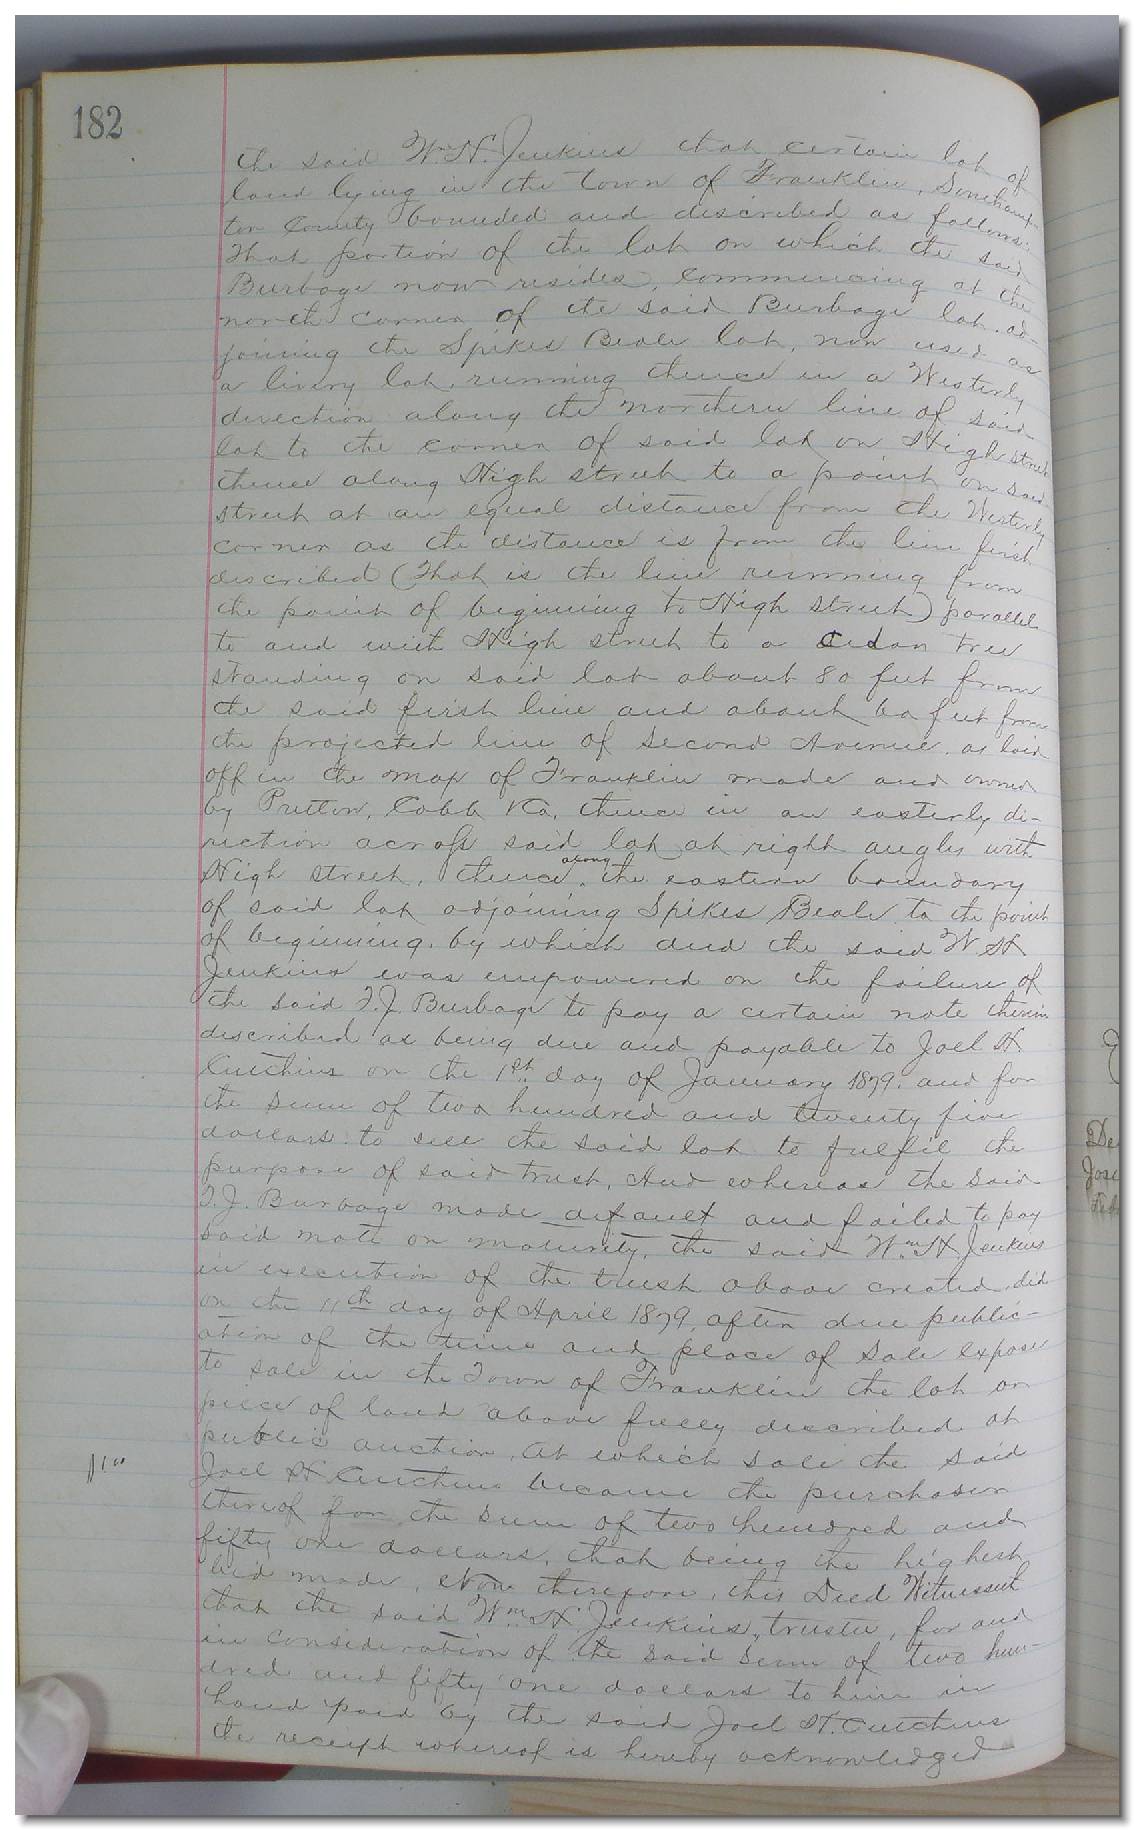 182
the said Wm H. Jenkins that certain lot of
land lying in the Town of Franklin, Southamp-
ton County bounded and described as follows:
That portion of the lot on which the said
Burbage now resides, commencing at the
north corner of the said Burbage lot ad-
joining the Spikes Beale lot, now used as
a livery lot, running thence in a Westerly
direction along the northern line of said
lot to the corner of said lot on High street
thence along High street to a point on said
street at an equal distance from the Westerly
corner as the distance is from the line first
described (That is the line running from
the point of beginning to High street) parallel
to and with High street to a Cedar tree
standing on said lot about 80 feet from
the said first line and about 60 feet from
the projected line of Second Avenue, as laid
off in the map of Franklin made and owned
by Pretlow, Cobb & Co, thence in an easterly di-
rection across said lot at right angles with
High street, thence along the eastern boundary
of said lot adjoining Spikes Beale to the point
of beginning. by which deed the said W H
Jenkins was empowered on the failure of
the said T. J. Burbage to pay a certain note therein
described as being due and payable to Joel H
Cutchins on the 1st day of January 1879. and for
the sum of two hundred and twenty five
dollars. to sell the said lot to fulfil the
purpose of said trust, And whereas the said
T. J. Burbage made default and failed to pay
said note on maturity, the said Wm H Jenkins
in execution of the trust above created did
on the 11th day of April 1879, after due public-
ation of the time and place of Sale expose
to sale in the Town of Franklin the lot or
piece of land above fully described at
public auction, at which sale the said
$1 00
Joel H Cutchins became the purchaser
thereof for the sum of two hundred and
fifty one dollars, that being the highest
bid made, Now therefore, this Deed Witnesseth
that the said Wm H Jenkins, trustee, for and
in consideration of the said sum of two hun-
dred and fifty one dollars to him in
hand paid by the said Joel H. Cutchins
the receipt whereof is hereby acknowledged
De
Jos
Feb